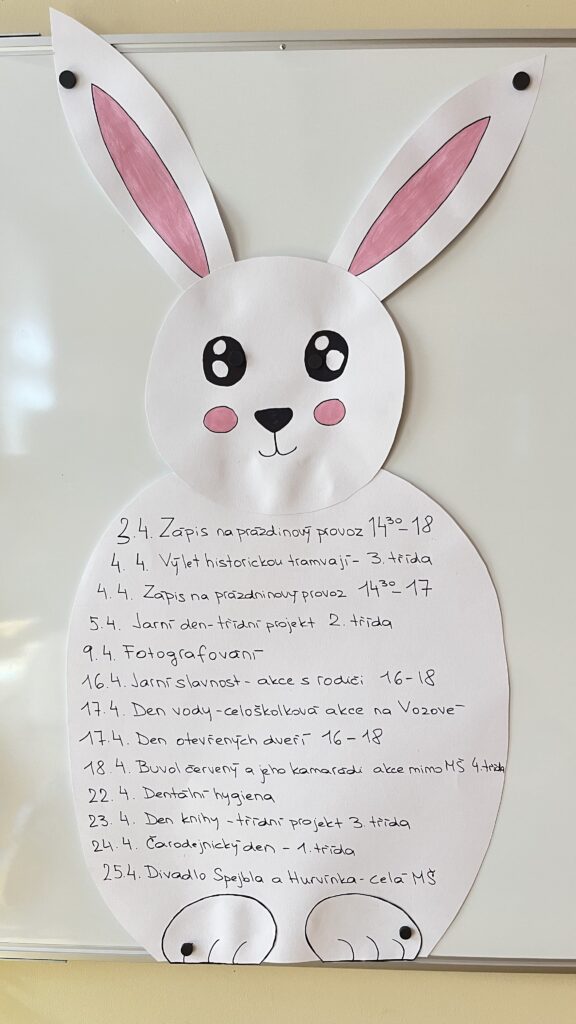 3.4. Zápis na prázdinový provoz 14³⁰-18
4.4. Výlet historickou tramvají - 3. třída
4.4. Zápis na prázdninový provoz 14³⁰-17
5.4. Jarní den - třídní projekt 2. třída
9.4. Fotografování
16.4. Jarní slavnost - akce s rodiči 16-18
17.4. Den vody - celoškolková akce na Vozové
17.4. Den otevřených dveří 16-18
18.4. Buvol červený a jeho kamarádi akce mimo MŠ 4. třída
22.4. Dentální hygiena
23.4. Den knihy - třídní projekt 3. třída
24.4. Čarodejnický den - 1. třída
25.4. Divadlo Spejbla a Hurvínka - celá MŠ